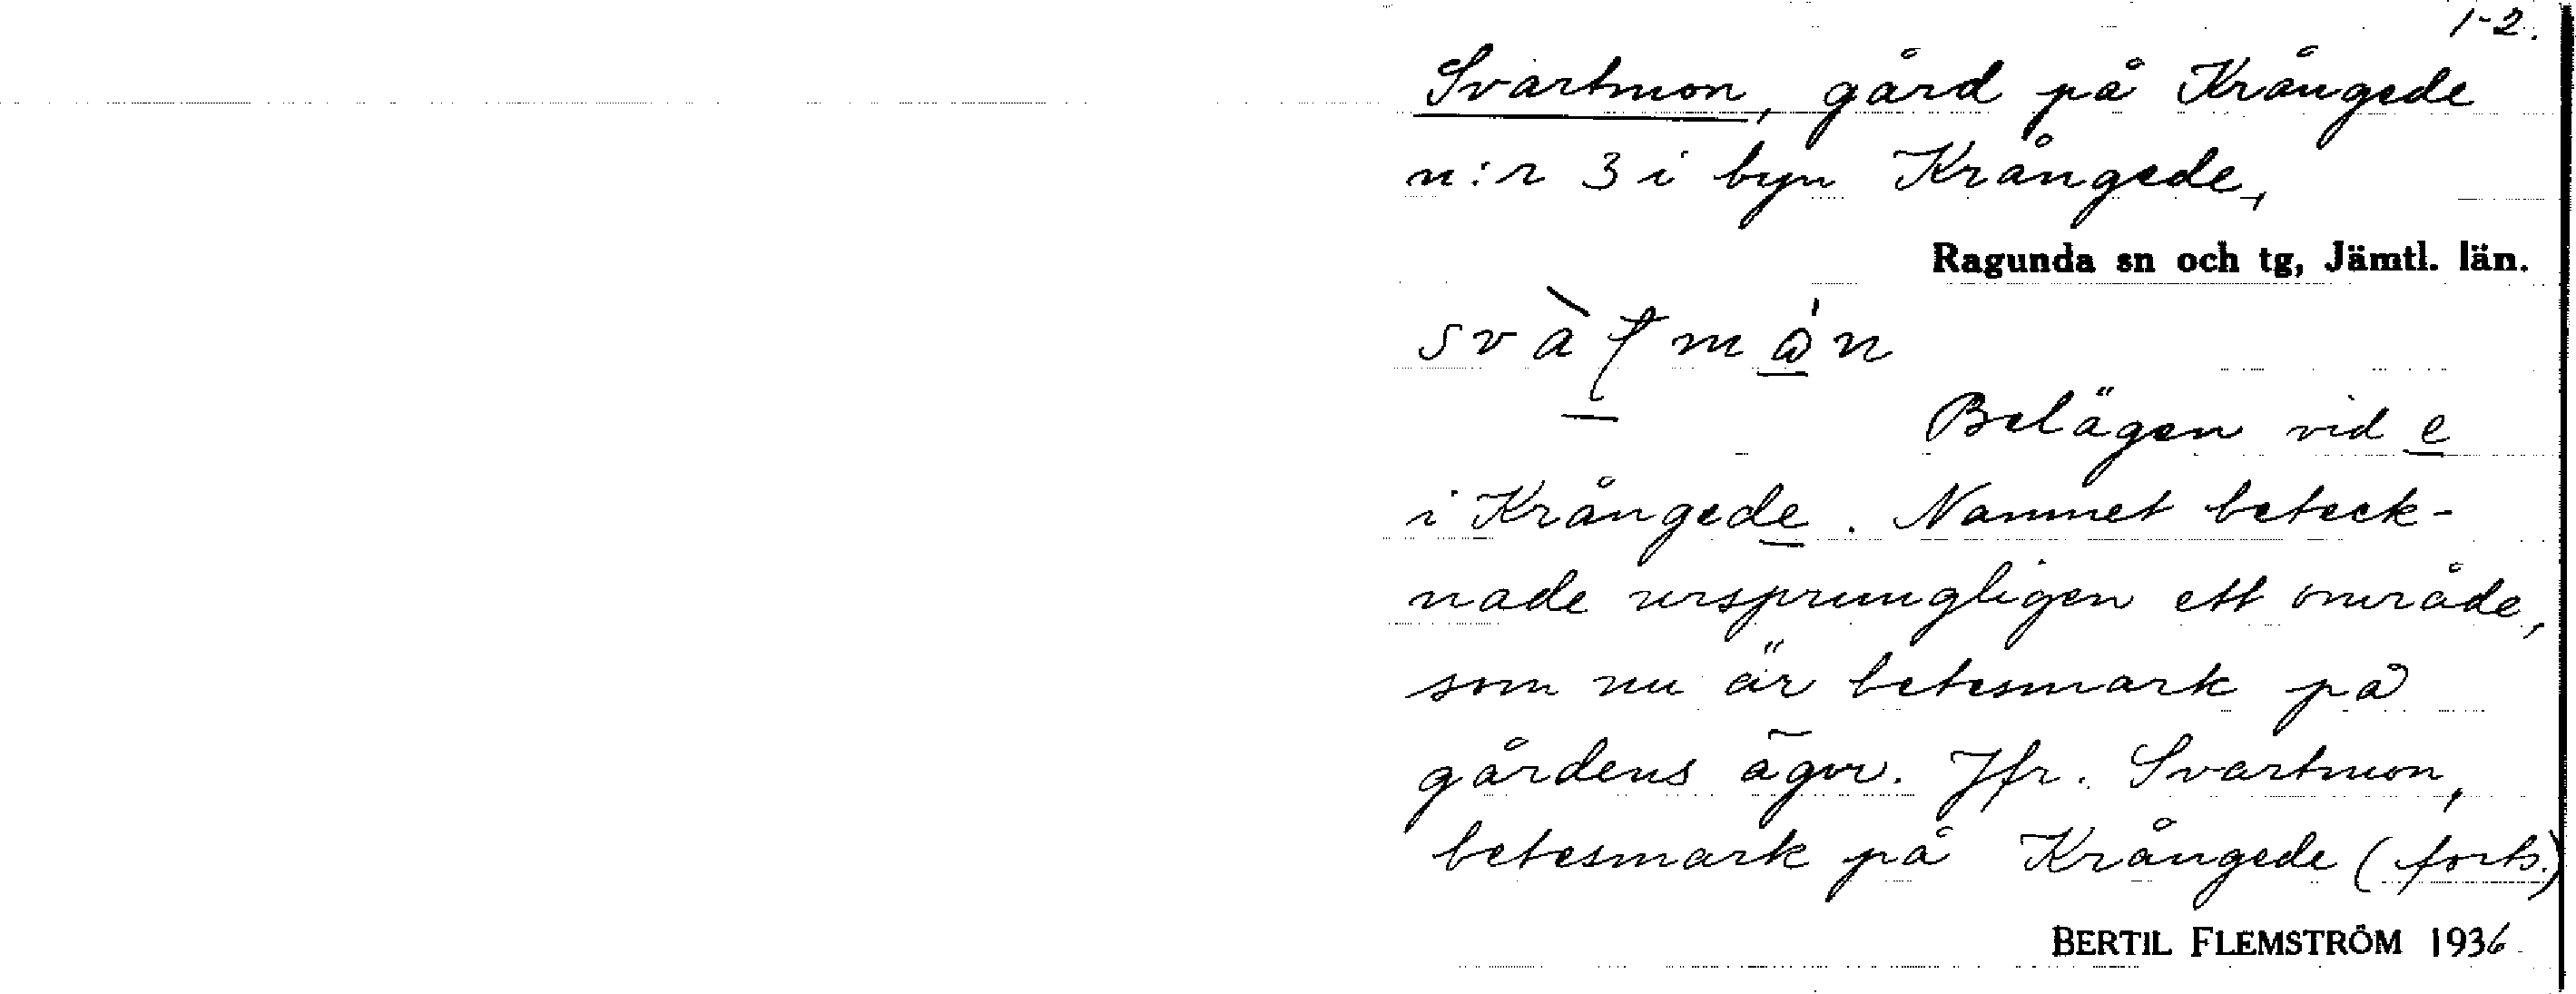 1-2.
Svartmon, gård på Krångede
n:r 3 i byn Krångede,
Ragunda sn och tg, Jämtl. län.
Belägen vid e
i Krångede. Namnet beteck-
nade ursprungligen ett område,
som nu är betesmark på
gårdens ägor. Jfr. Svartmon,
betesmark på Krångede (forts.)
BERTIL FLEMSTRÖM 1936